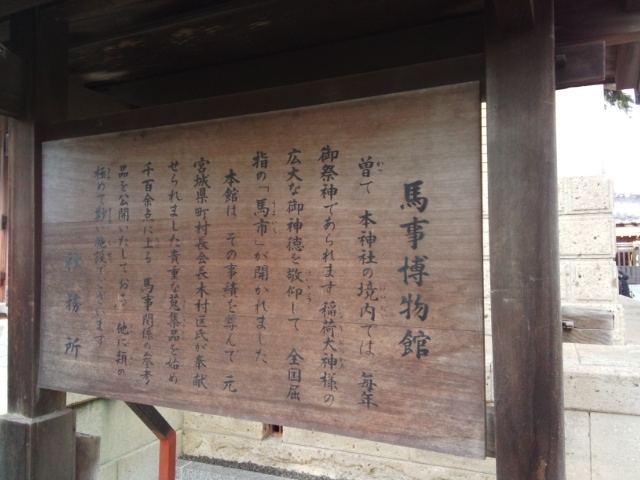 馬事博物館
曽て 本神社の境内では 毎年
御祭神であられます 稲荷大神様の
広大な御神徳を敬仰して 全国屈
指の「馬市」が開かれました
本館は その事績を尊んで 元
宮城県町村長会長木村匡氏が奉献
せられました貴重な蒐集品を始め
千百余点に上る 馬事関係の参考
品を公開いたしており 他に類の
極めて尠い施設でございます
社務所